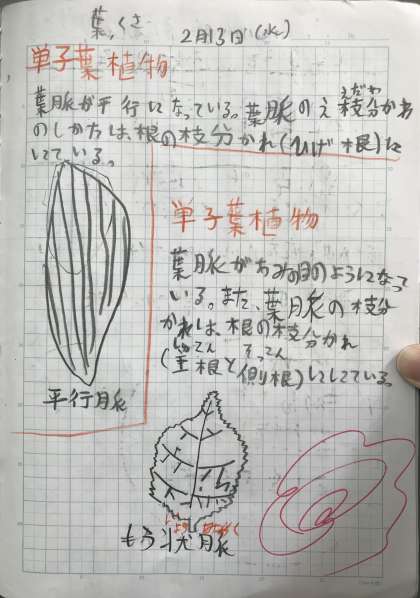 葉、くさ
2月13日(水)
単子葉植物
葉脈が平行になっている。葉脈のえ枝分かれ
えだわ
のしかたは、根の枝分かれ(ひげ根)に
にている。
単子葉植物
葉脈があみの目のようになって
いる。また、葉脈の枝分
かれは、根の枝分かれ
しゅこん そっこん
(主根と側根)ににている。
平行脈
もう状脈